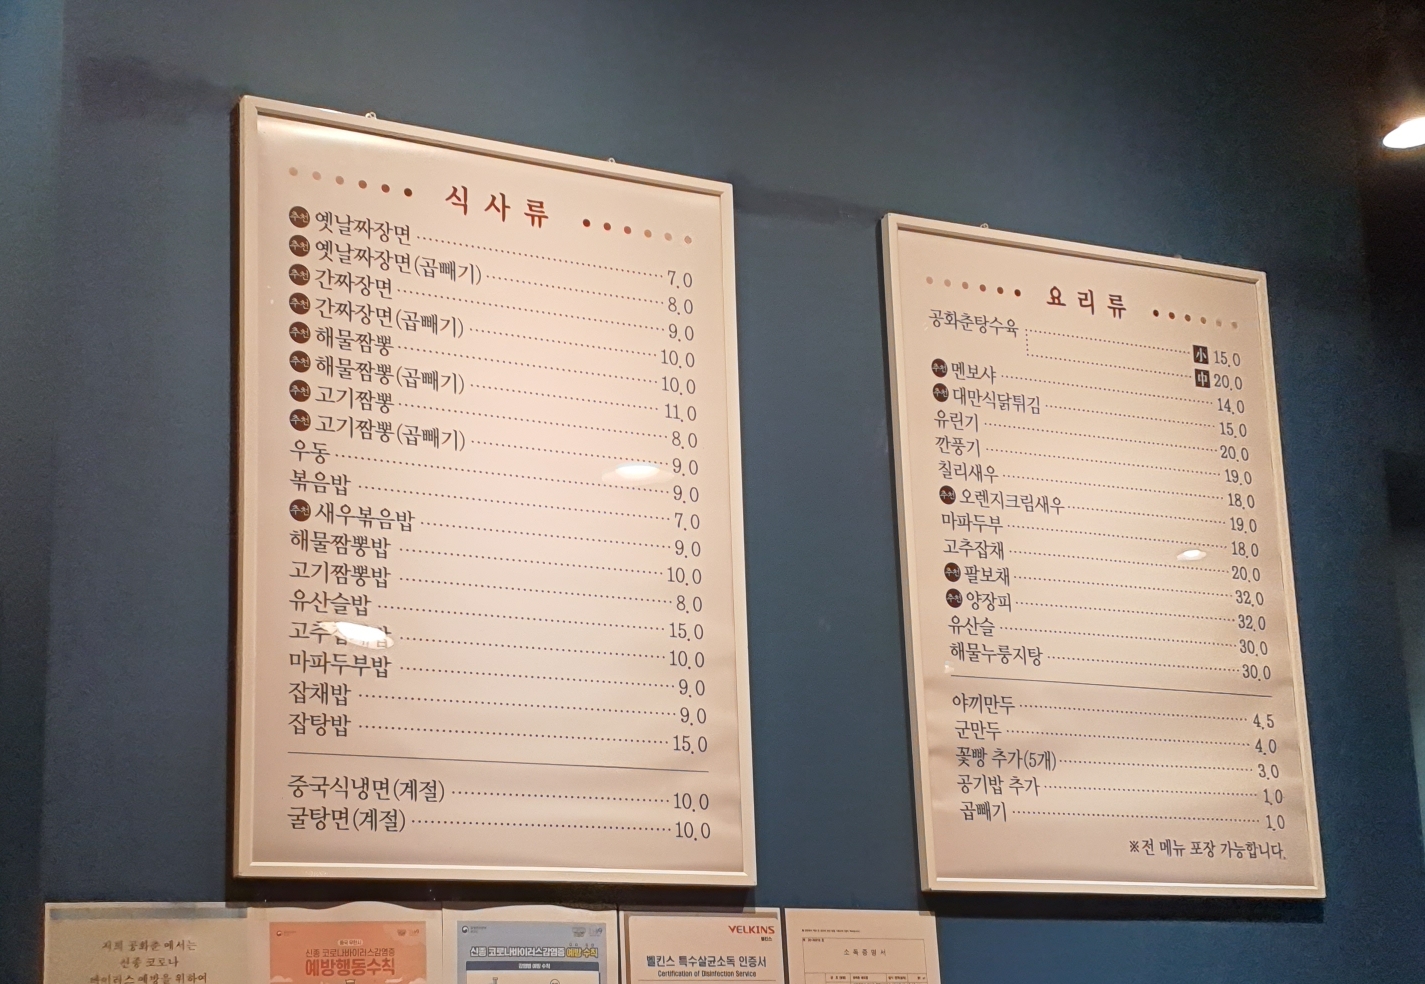 식사류
추천 옛날짜장면 7.0
추천 옛날짜장면(곱빼기) 8.0
추천 간짜장면 9.0
추천 간짜장면(곱빼기) 10.0
추천 해물짬뽕 10.0
추천 해물짬뽕(곱빼기) 11.0
추천 고기짬뽕 8.0
추천 고기짬뽕(곱빼기) 9.0
우동 9.0
볶음밥 7.0
추천 새우볶음밥 9.0
해물짬뽕밥 10.0
고기짬뽕밥 8.0
유산슬밥 15.0
10.0
마파두부밥 9.0
잡채밥 9.0
잡탕밥 15.0
중국식냉면(계절) 10.0
굴탕면(계절) 10.0
요리류
공화춘탕수육 小 15.0
中 20.0
추천 멘보샤 14.0
추천 대만식닭튀김 15.0
유린기 20.0
깐풍기 19.0
칠리새우 18.0
추천 오렌지크림새우 19.0
마파두부 18.0
고추잡채 20.0
추천 팔보채 32.0
추천 양장피 32.0
유산슬 30.0
해물누룽지탕 30.0
야끼만두 4.5
군만두 4.0
꽃빵 추가(5개) 3.0
공기밥 추가 1.0
곱빼기 1.0
※전 메뉴 포장 가능합니다.
저희 공화춘 에서는
신종 코로나
바이러스 예방을 위하여
신종 코로나바이러스감염증
예방행동수칙
신종 코로나바이러스감염증 예방수칙
VELKINS
벨킨스
벨킨스 특수살균소독 인증서
Certification of Disinfection Service
소독증명서